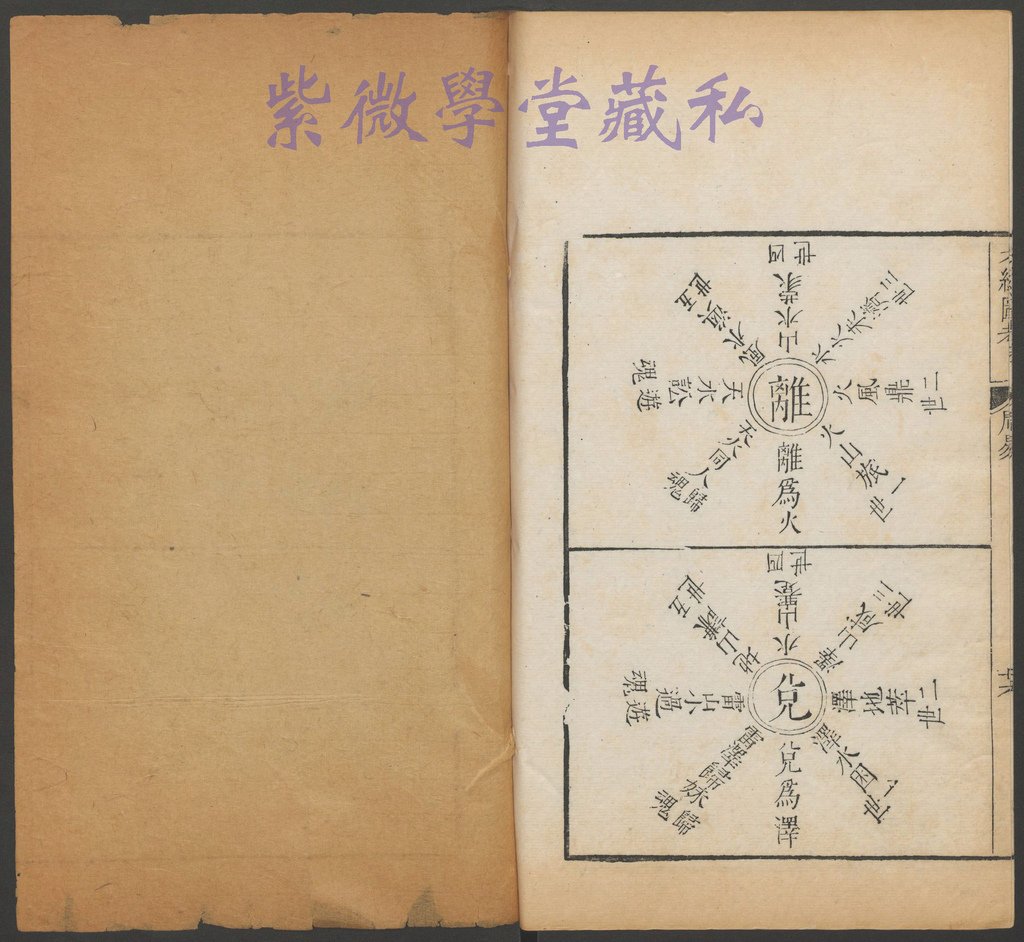 紫微學堂藏私
離
離爲火
火山旅
一世
火風鼎
二世
火水未濟
三世
山水蒙
四世
風水渙
五世
天水訟
遊魂
天火同人
歸魂
兌
兌爲澤
澤水困
一世
澤地萃
二世
澤山咸
三世
水山蹇
四世
地山謙
五世
雷山小過
遊魂
雷澤歸妹
歸魂
周易